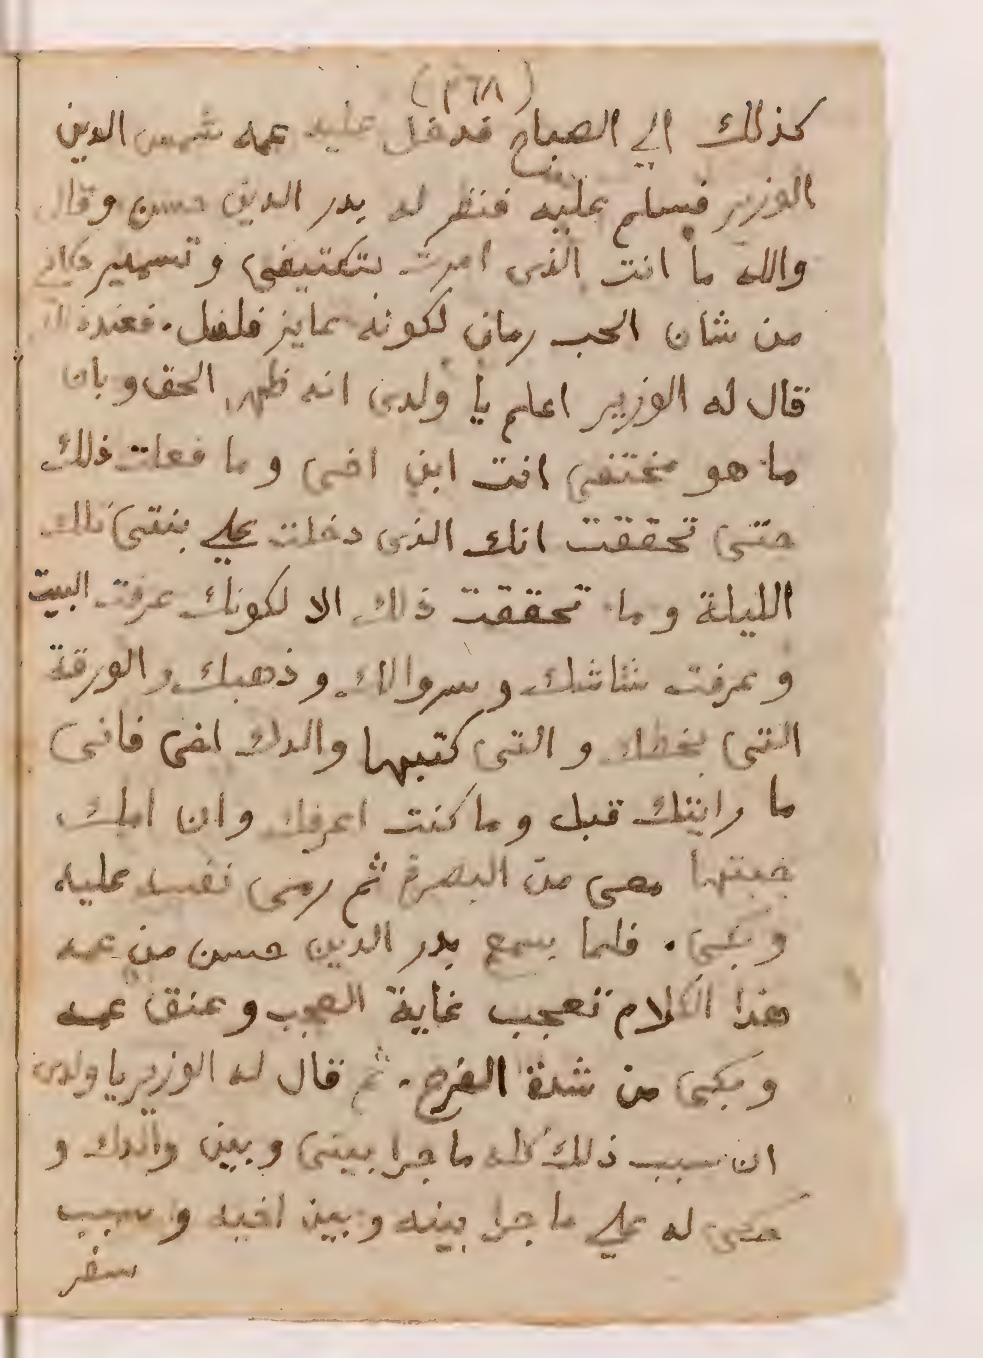 (٦٨م)
كذلك الي الصباح فدخل عليه عمه شمس الدين
الوزير فسلم عليه فنظر له بدر الدين حسن وقال
والله ما انت الذى امرت بتكتيفى و تسمير دكانى
من شان الحب رمان لكونه عايز فلفل. فعند ذلك
قال له الوزير اعلم يا ولدى انه ظهر الحق و بان
ما هو مختفى انت ابن اخى و ما فعلت ذلك
حتى تحققت انك الذى دخلت علي بنتى تلك
الليلة و ما تحققت ذلك الا لكونك عرفت البيت
و عرفت شاشك و سروالك و ذهبك و الورقة
التى بخطك و التى كتبها والدك اخى فانى
ما رايتك قبل و ما كنت اعرفك وان امك
جبتها معى من البصرة ثم رمى نفسه عليه
و بكى. فلما سمع بدر الدين حسن من عمه
هذا الكلام تعجب غاية العجب و عنق عمه
و بكى من شدة الفرح. ثم قال له الوزير يا ولدى
ان سبب ذلك كله ما جرا بينى و بين والدك و
حكى له علي ما جرا بينه و بين اخيه و سبب
سفر